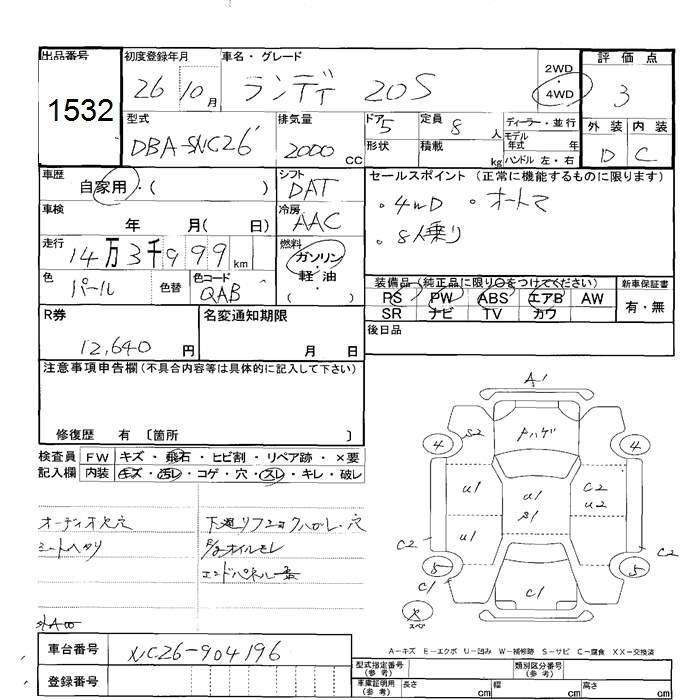 出品番号
1532
初度登録年月
26 10月
車名・グレード
ランディ 20S
2WD
4WD
評価点
3
型式
DBA-SNC26
排気量
2000 CC
ドア 5
形状
定員 8 人
積載 kg
ディーラー・並行
モデル
年式 年
ハンドル 左・右
外装 内装
D C
車歴
自家用・( )
シフト
DAT
セールスポイント (正常に機能するものに限ります)
。4WD 。オートマ
。8人乗り
車検
年 月( 日)
冷房
AAC
走行
14万3千999km
燃料
ガソリン
軽・油
( ・ )
色
パール
色替
色コード
QAB
装備品 (純正品に限り〇をつけてください)
PS PW ABS エアB AW
SR ナビ TV カワ
新車保証書
有・無
R券
12,640 円
名変通知期限
月 日
後日品
注意事項申告欄 (不具合内容等は具体的に記入して下さい)
修復歴 有 〔箇所 〕
検査員
記入欄
FW キズ・飛石・ヒビ割・リペア跡・×要
内装 キズ・汚レ・コゲ・穴・スレ・キレ・破レ
オーディオ欠穴
シートヘタリ
下廻りフユ
オイルモレ
エンドパネル
外A
A1
4 S2 ハゲ 4
U1 U1 C2
S1 U2
U1
C2 C2
5 5
C1 C1
スペア
A-キズ E-エクボ U-凹み W-補修跡 S-サビ C-腐食 XX-交換済
車台番号
NC26-904196
登録番号
型式指定番号
(参考)
類別区分番号
(参考)
車庫証明用
(参考)
長さ cm 幅 cm 高さ cm